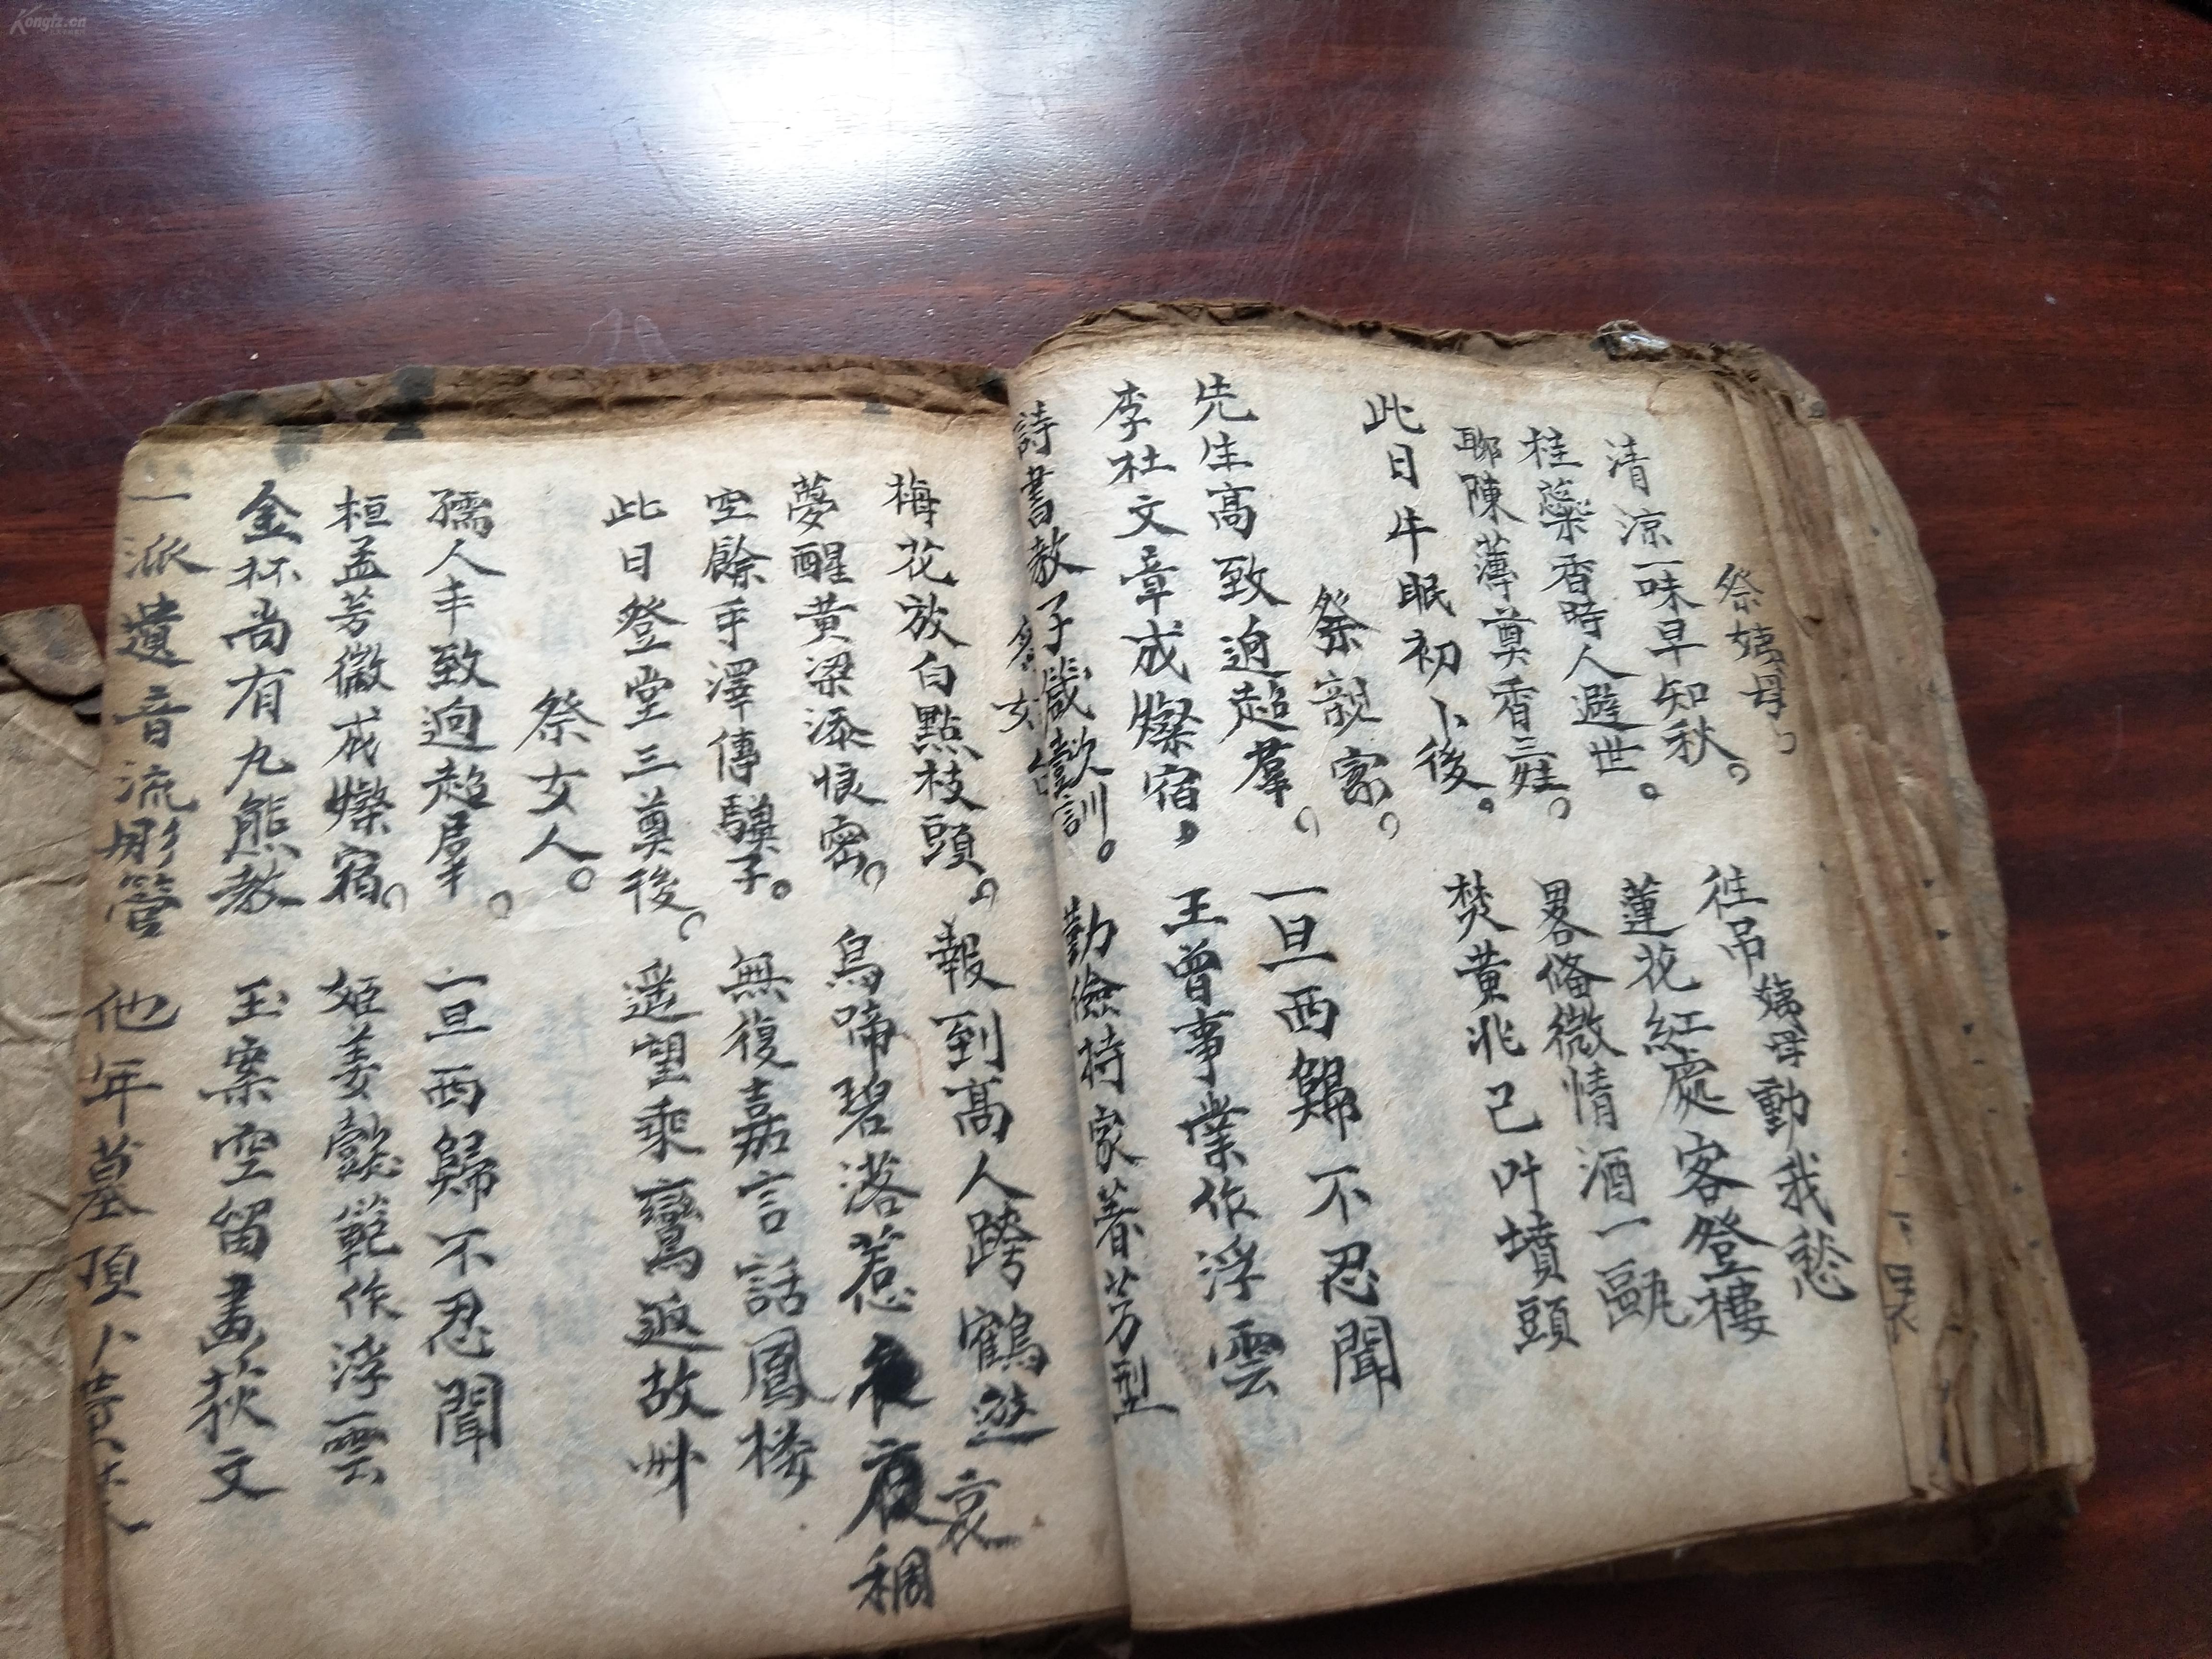 Kongfz.cn
祭姨母。
清涼一味早知秋。 往吊姨母動我愁
桂蘂香時人避世。 蓮花紅處客登樓
聊陳薄奠香三炷。 畧俻微情酒一甌
此日牛眠初卜後。 焚黃兆已叶墳頭
祭親家。
先生高致迥超羣。 一旦西歸不忍聞
李杜文章成燦宿， 王曾事業作浮雲
詩書教子箴歐訓。 勤儉持家著芳型
梅花放白點枝頭。 報到高人跨鶴遊
夢醒黃梁添恨密。 鳥啼碧落惹夜稠
哀
空餘手澤傳驥子。 無復嘉言話鳳楼
此日登堂三奠後。 遥望乘鸞返故坵
祭女人。
孺人丰致迥超羣。 一旦西歸不忍聞
桓孟芳徽成燦宿。 姬姜懿範作浮雲
金杯尚有丸熊教 玉案空留畫荻文
一派遺音流彤管 他年墓頂